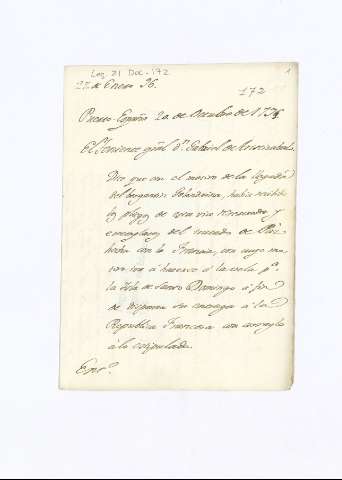 Leg. 21 Doc. 172
22 de Enero 96.
172
1
Puerto-España 20 de Octubre de 1795
El Teniente gral. dn. Gabriel de Aristizabal.
Dice que con el motivo de la llegada
del bergantin havia recibido
los pliegos de esta via reservada y
exemplares del tratado de Paz
hecha con la Francia, con cuyo mo-
tivo iva á hacerse á la vela pa.
la Isla de Santo Domingo á fin
de disponer su entrega á la
Republica Francesa con arreglo
á lo estipulado.